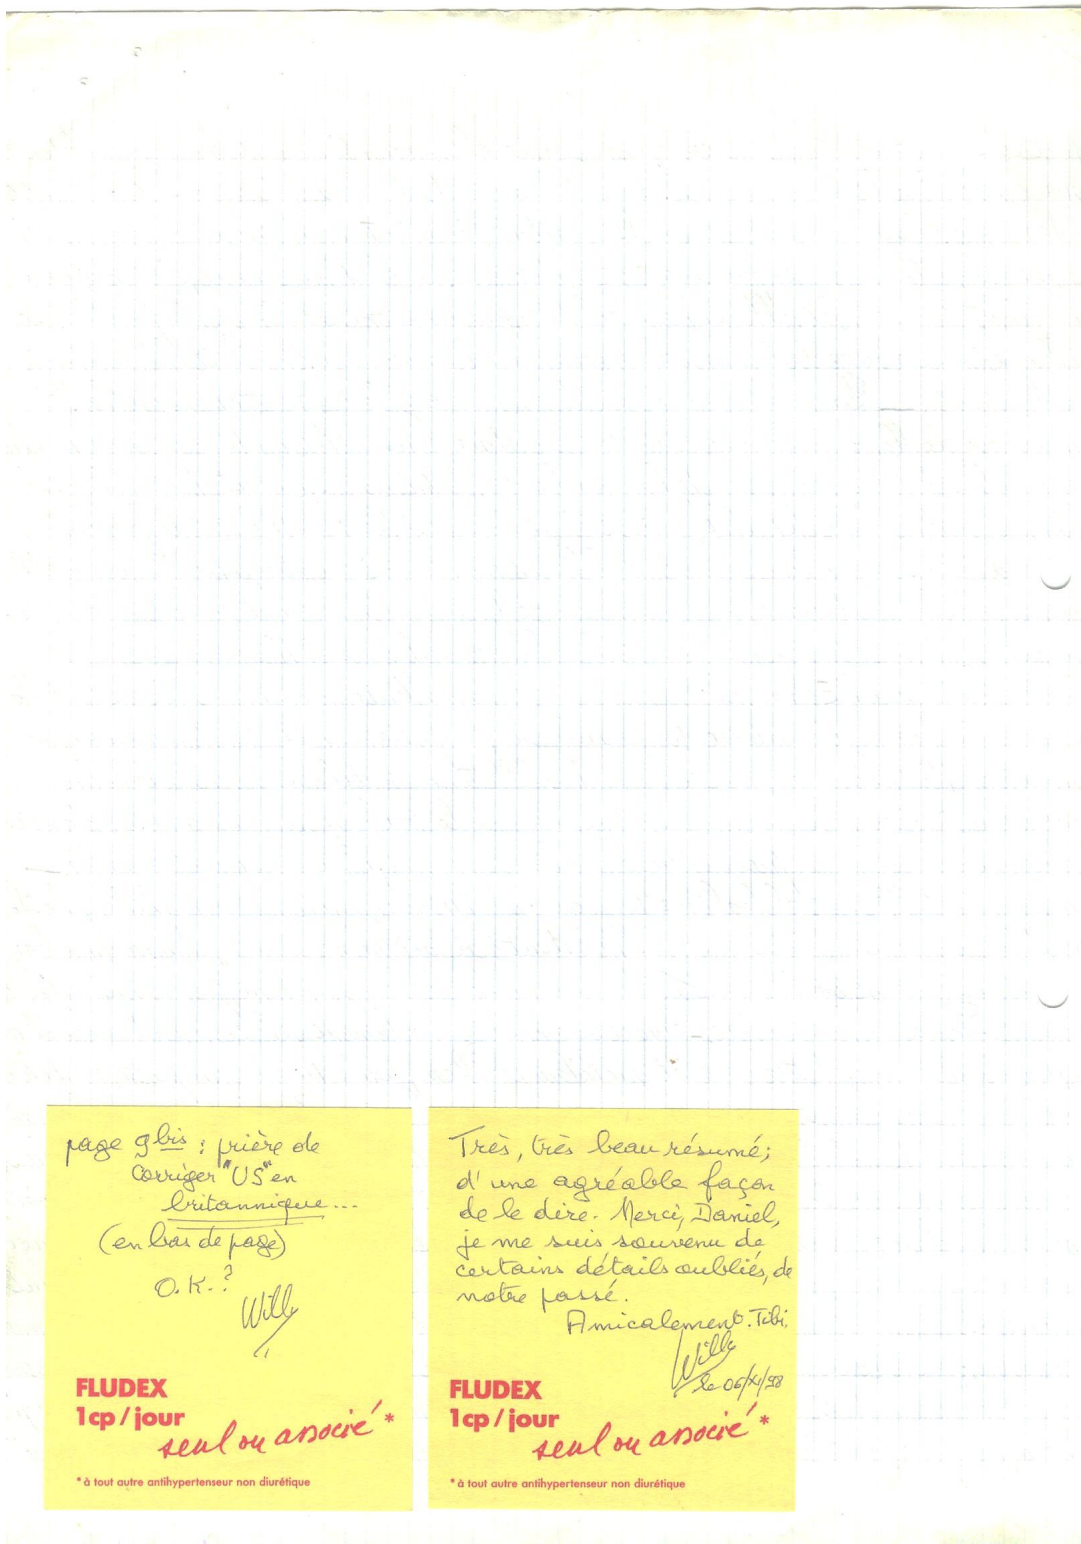 page 9 bis : prière de
corriger "US" en
britannique...
(en bas de page)
O.K.?
Willy
FLUDEX
1cp / jour
seul ou associé *
* à tout autre antihypertenseur non diurétique
Très, très beau résumé;
d'une agréable façon
de le dire. Merci, Daniel,
je me suis souvenu de
certains détails oubliés, de
notre passé.
Amicalement. Tibi.
Willy
le 06/XI/98
FLUDEX
1cp / jour
seul ou associé *
* à tout autre antihypertenseur non diurétique